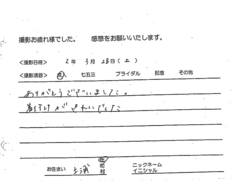 撮影お疲れ様でした。 感想をお願いいたします。
<撮影日時> 2年 3月 28日(土)
<撮影項目> 七五三 ブライダル 記念 その他
ありがとうございました。
お住まい ニックネーム
イニシャル